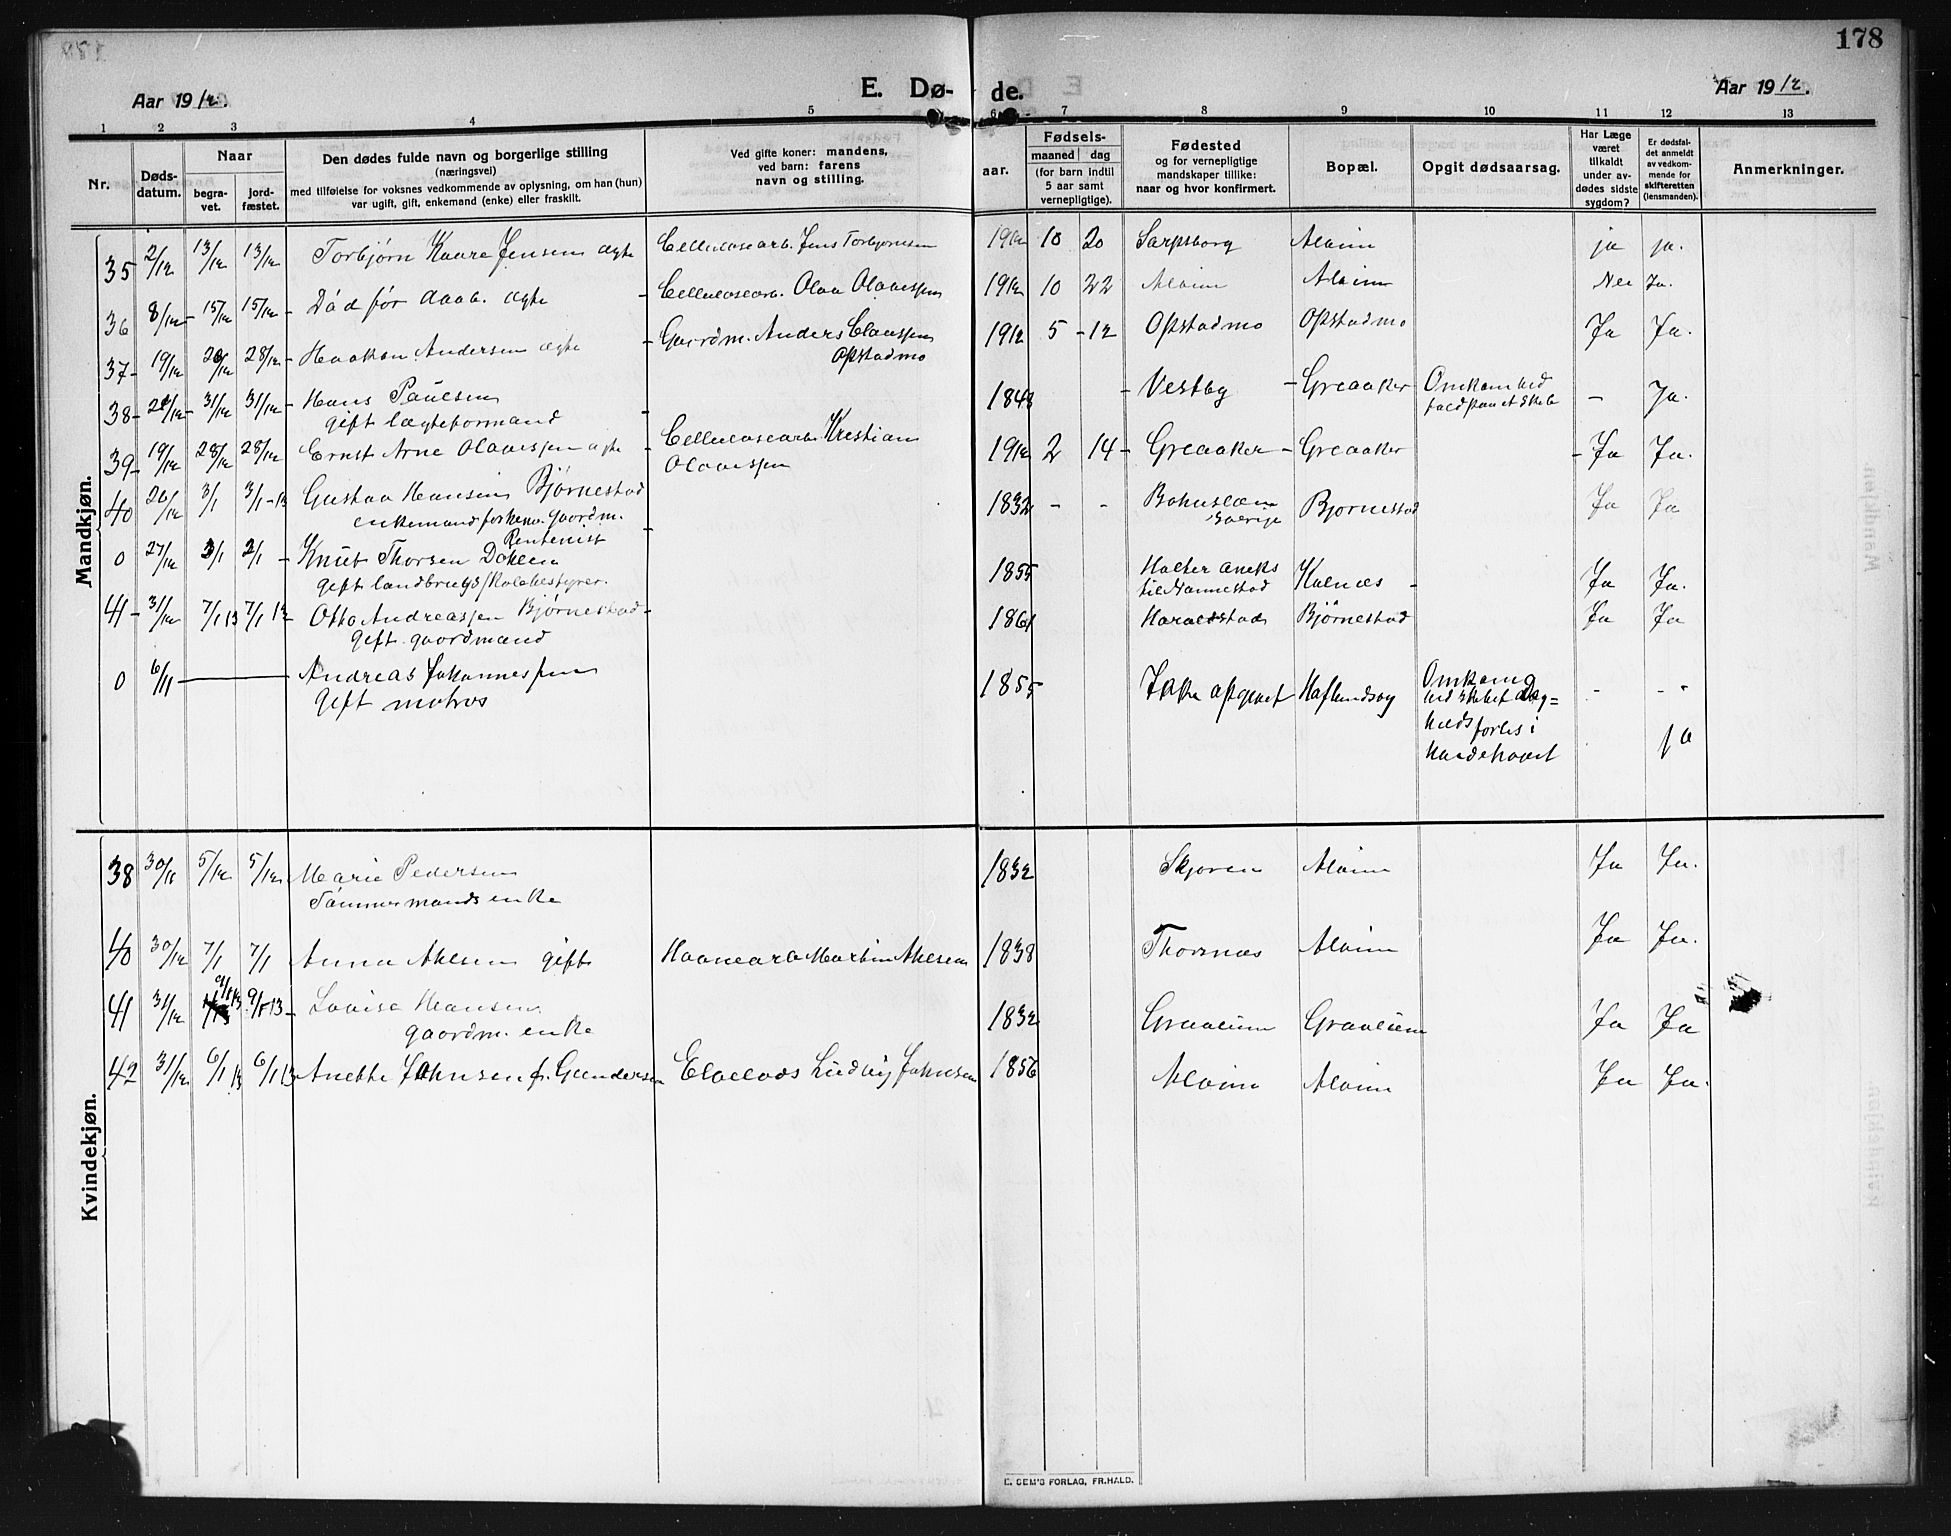 178
Aar 1912.
E. Dø-
de.
Aar 1912.
1 2 3 4 5 6 7 8 9 10 11 12 13
Nr.
Døds-
datum.
Naar
begra-
vet.
jord-
fæstet.
Den dødes fulde navn og borgerlige stilling
(næringsvei)
med tilføielse for voksnes vedkommende av oplysning, om han (hun)
var ugift, gift, enkemand (enke) eller fraskilt.
Ved gifte koner: mandens,
ved barn: farens
navn og stilling.
aar.
Fødsels-
maaned dag
(for barn indtil
5 aar samt
vernepligtige).
Fødested
og for vernepligtige
mandskaper tillike:
naar og hvor konfirmert.
Bopæl.
Opgit dødsaarsag.
Har Læge
været
tilkaldt
under av-
dødes sidste
sygdom?
Er dødsfal-
det anmeldt
av vedkom-
mende for
skifteretten
(lensmanden).
Anmerkninger.
Mandkjøn.
35 2/12 13/12 13/12 Torbjørn Kaare Jensen ægte Cellulosearb. Jens Torbjørnsen 1912 10 20 Sarpsborg Alvim ja ja.
36 8/12 15/12 15/12 Død før daab. ægte Cellulosearb. Olav Olavessen 1912 10 22 Alvim Alvim Nei Ja.
37 19/12 28/12 28/12 Haakon Andersen ægte Gaardm. Anders Claussen 1912 5 12 Opstadmo Opstadmo Ja Ja.
Opstadmo
38 31/12 31/12 Hans Paulsen 1848 Vestby Greaaker Omkom ved Ja.
gift lægteformand
39 19/12 28/12 28/12 Ernst Arne Olavessen ægte Cellulosearb. Kristian 1912 2 14 Greaaker Greaaker Ja Ja.
Olavessen
40 26/12 3/1 3/1-13 Gustav Hansen Bjørnestad 1832 - - Bohuslæn Bjørnestad Ja Ja
Sverige
enkemand forhenv. gaardm.
Rentenist
0 27/12 3/1 2/1 Knut Thorsen Døhlen 1855 Holter aneks Kalnæs Ja Ja.
gift landbrugsskolebestyrer. til Nannestad
41 31/12 7/1 13 7/1 13 Otto Andreassen Bjørnestad 1861 Haraldstad Bjørnestad Ja Ja
gift gaardmand
0 6/11 Andreas Johannessen 1855 Ikke opgivet Haflundsøy Omkom
gift matros ved skibet Dag=
forlis i
ja
Kvindekjøn.
38 30/11 5/12 5/12 Marie Pedersen 1832 Skjeren Alvim Ja Ja.
Tømmermands enke
40 30/12 7/1 7/1 Anna Ahlsen gift Havnearb Martin Ahlsen 1838 Thorsnæs Alvim Ja Ja.
9/1 13
41 31/12 9/1 13 Lovise Hansen 1832 Graalum Graalum Ja Ja
gaardm. enke
42 31/12 6/1 13 6/1 13 Anette Johnsen f. Gundersen Elvelods Ludvig Johnsen 1856 Alvim Alvim Ja Ja.
E. SEM'S FORLAG, FR.HALD.